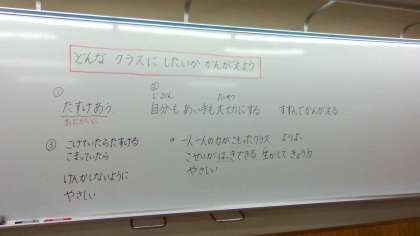 どんな クラスに したいか かんがえよう
①
たすけあう
②
じぶん
たいせつ
自分も あい手も 大切にする
すすんでかんがえる
③ こけていたらたすける
こまっていたら
けんかしないように
やさしい
一人一人の力がこもったクラス よりよい
こせいがはっきできる 生かして きょう力
やさしい